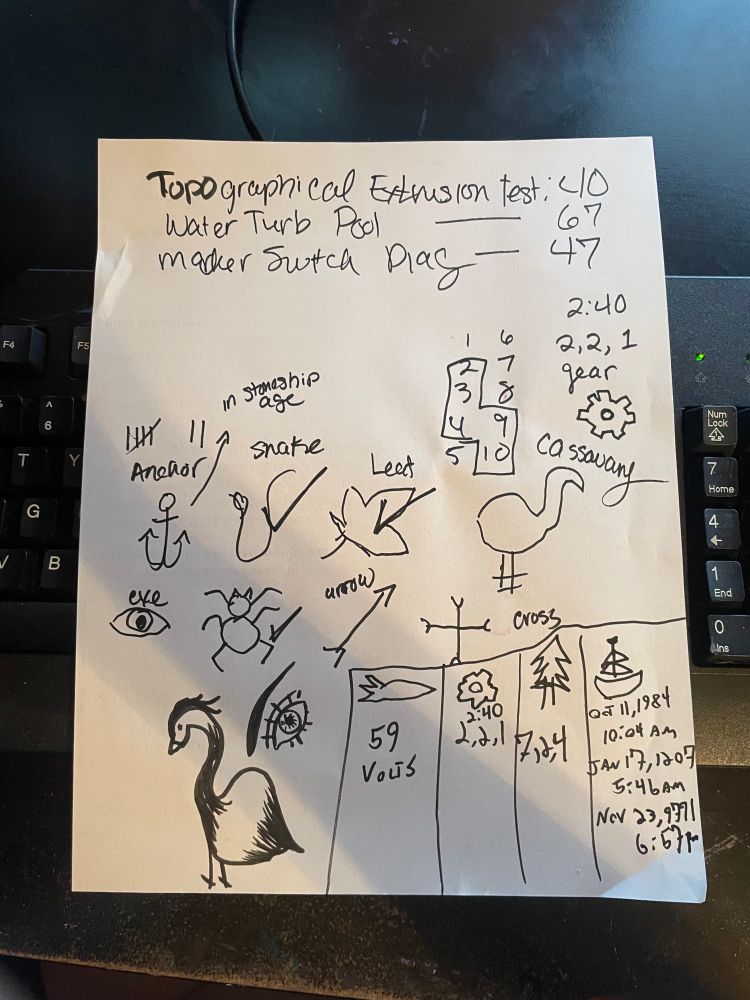 Topographical Extrusion test: 40
Water Turb Pool — 67
Marker Switch Diag — 47
2:40
2, 2, 1
gear
1 6
2 7
3 8
4 9
5 10
in stoneship
age
Anchor
snake
Leaf
Cassowary
eye
arrow
cross
59
VOLTS
2:40
2,2,1
7,2,4
Oct 11, 1984
10:04 AM
JAN 17, 1207
5:46 AM
Nov 23, 9791
6:57
F4
F5
^
6
T
Y
G
V
B
Num
Lock
7
Home
4
1
End
0
Ins